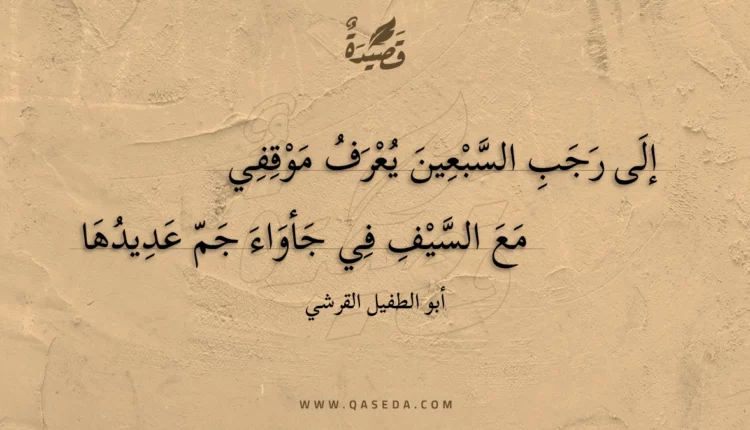 قَصِيدَةٌ
إلَى رَجَبِ السَّبْعِينَ يُعْرَفُ مَوْقِفِي
مَعَ السَّيْفِ فِي جَأوَاءَ جَمّ عَدِيدُهَا
أبو الطفيل القرشي
WWW.QASEDA.COM